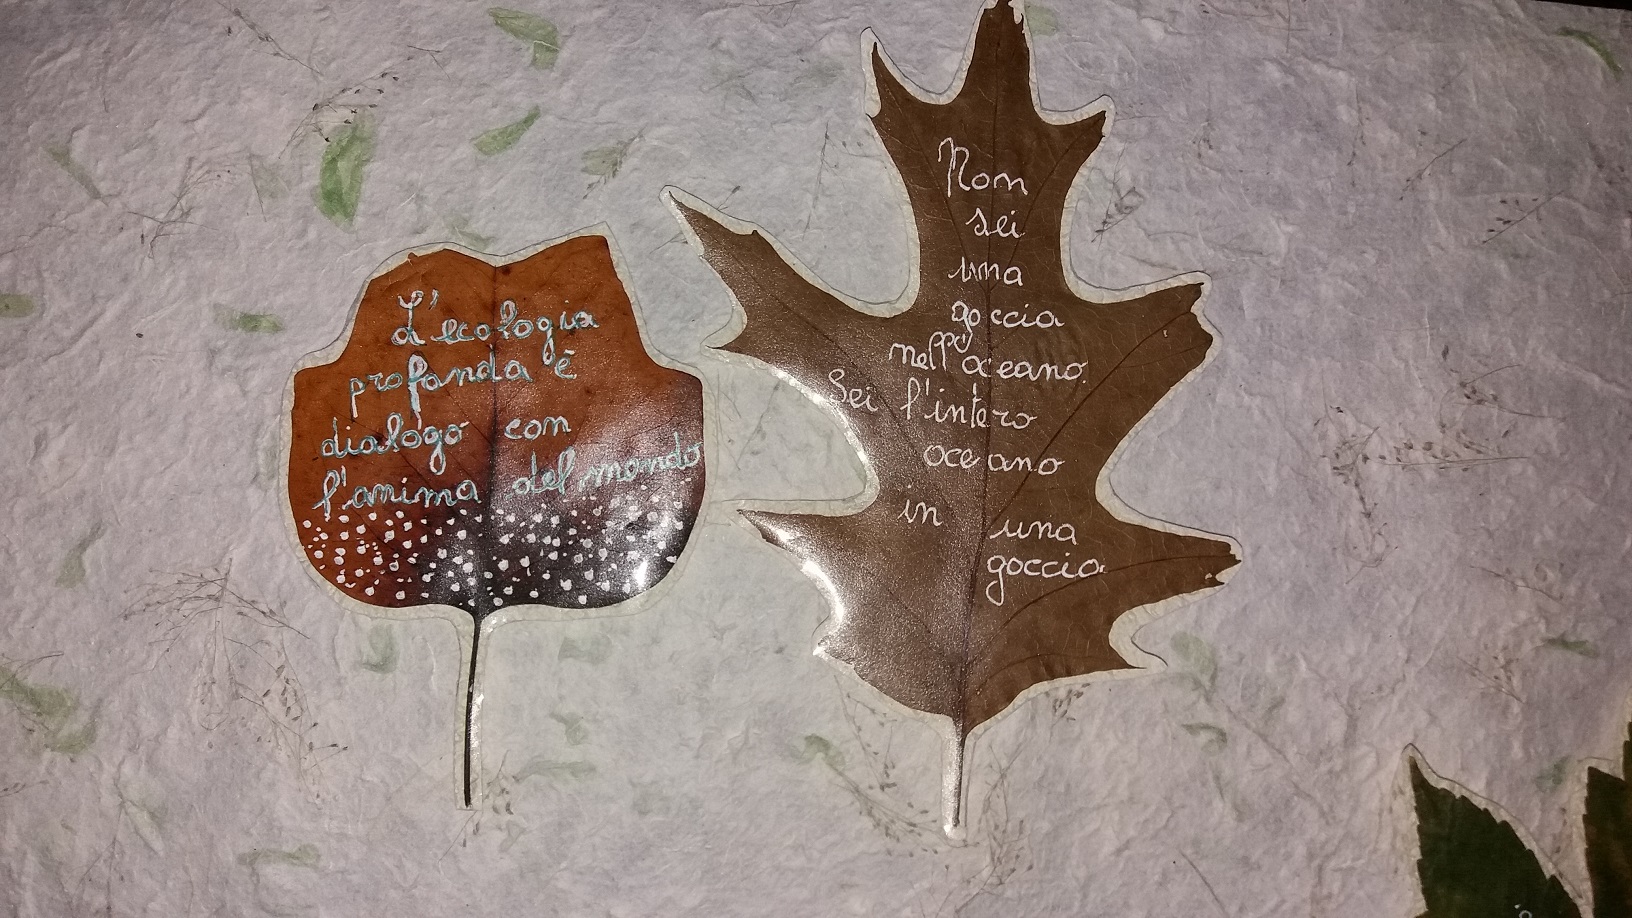 L'ecologia
profonda è
dialogo con
l'anima del mondo
Non
sei
una
goccia
nell'oceano.
Sei l'intero
oceano
in una
goccia